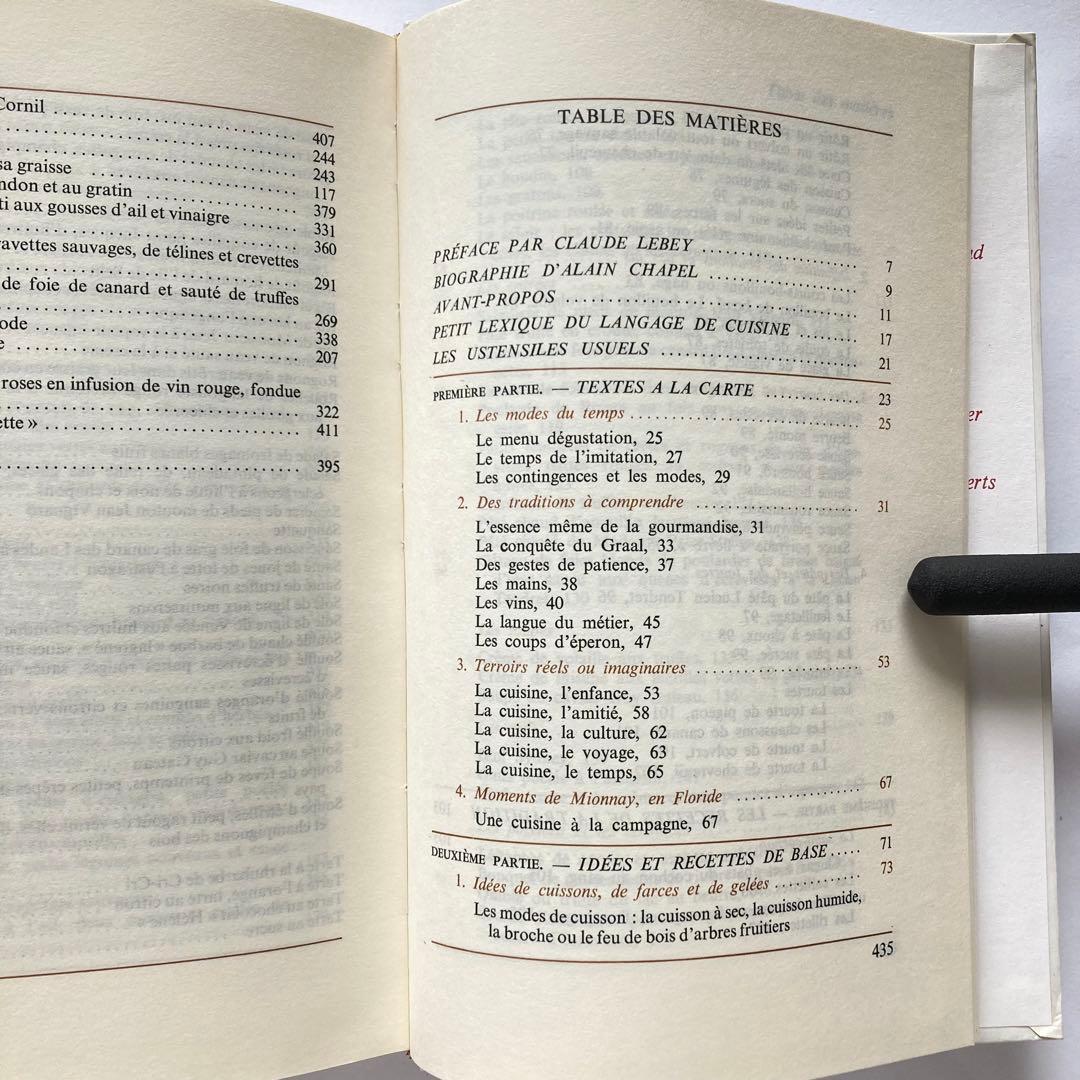 Cornil
407
244
sa graisse
243
ndon et au gratin
117
ti aux gousses d'ail et vinaigre
379
331
ravettes sauvages, de télines et crevettes
360
291
de foie de canard et sauté de truffes
269
ode
338
e
207
roses en infusion de vin rouge, fondue
322
ette »
411
395
TABLE DES MATIÈRES
PRÉFACE PAR CLAUDE LEBEY 7
BIOGRAPHIE D'ALAIN CHAPEL 9
AVANT-PROPOS 11
PETIT LEXIQUE DU LANGAGE DE CUISINE 17
LES USTENSILES USUELS 21
PREMIÈRE PARTIE. — TEXTES A LA CARTE 23
1. Les modes du temps 25
Le menu dégustation, 25
Le temps de l'imitation, 27
Les contingences et les modes, 29
2. Des traditions à comprendre 31
L'essence même de la gourmandise, 31
La conquête du Graal, 33
Des gestes de patience, 37
Les mains, 38
Les vins, 40
La langue du métier, 45
Les coups d'éperon, 47
3. Terroirs réels ou imaginaires 53
La cuisine, l'enfance, 53
La cuisine, l'amitié, 58
La cuisine, la culture, 62
La cuisine, le voyage, 63
La cuisine, le temps, 65
4. Moments de Mionnay, en Floride 67
Une cuisine à la campagne, 67
DEUXIÈME PARTIE. — IDÉES ET RECETTES DE BASE 71
1. Idées de cuissons, de farces et de gelées 73
Les modes de cuisson : la cuisson à sec, la cuisson humide,
la broche ou le feu de bois d'arbres fruitiers
435
ud
er
erts